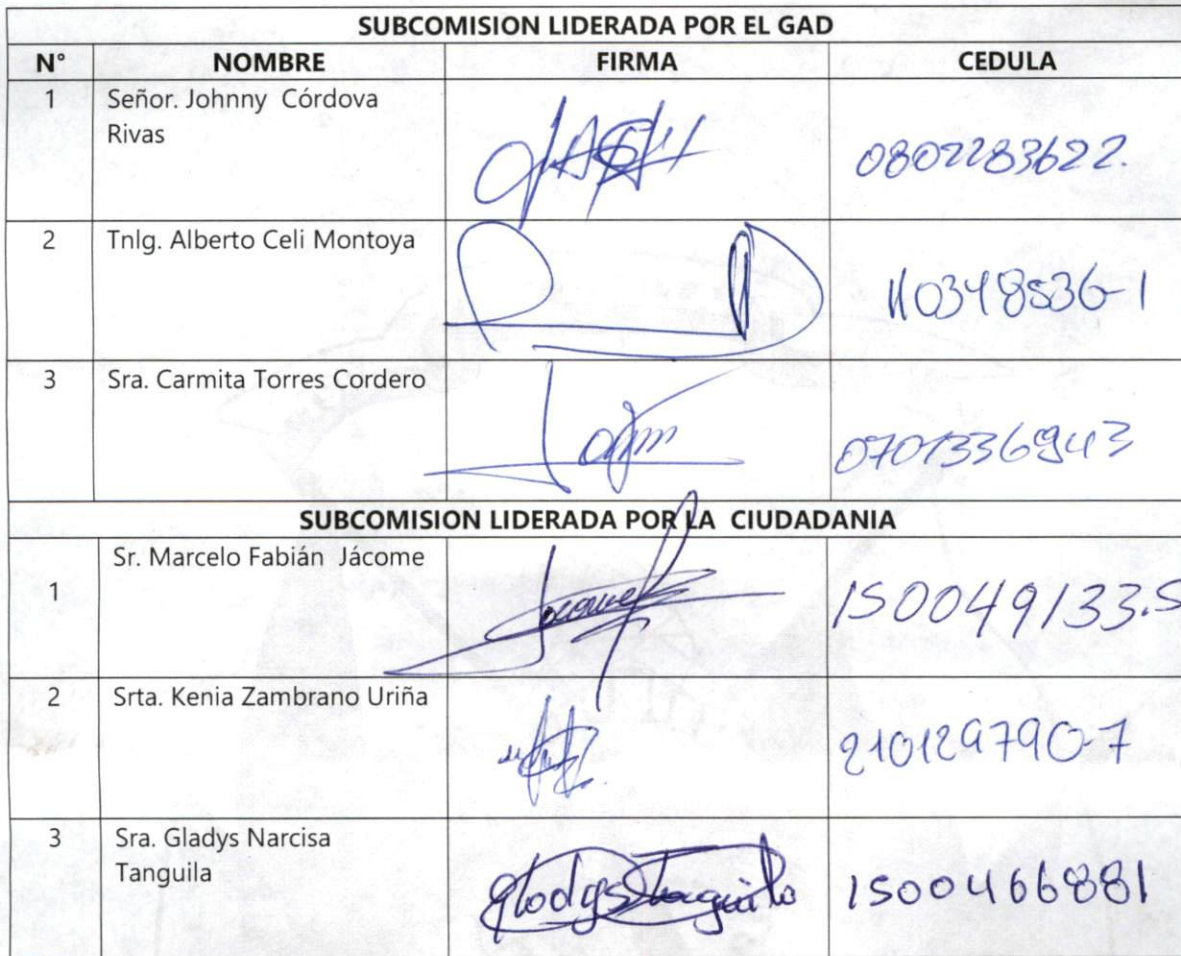 SUBCOMISION LIDERADA POR EL GAD
N° NOMBRE FIRMA CEDULA
1 Señor. Johnny Córdova
Rivas
0802283622.
2 Tnlg. Alberto Celi Montoya
110348536-1
3 Sra. Carmita Torres Cordero
0701336943
SUBCOMISION LIDERADA POR LA CIUDADANIA
1 Sr. Marcelo Fabián Jácome
150049133.5
2 Srta. Kenia Zambrano Uriña
210129790-7
3 Sra. Gladys Narcisa
Tanguila
1500466881